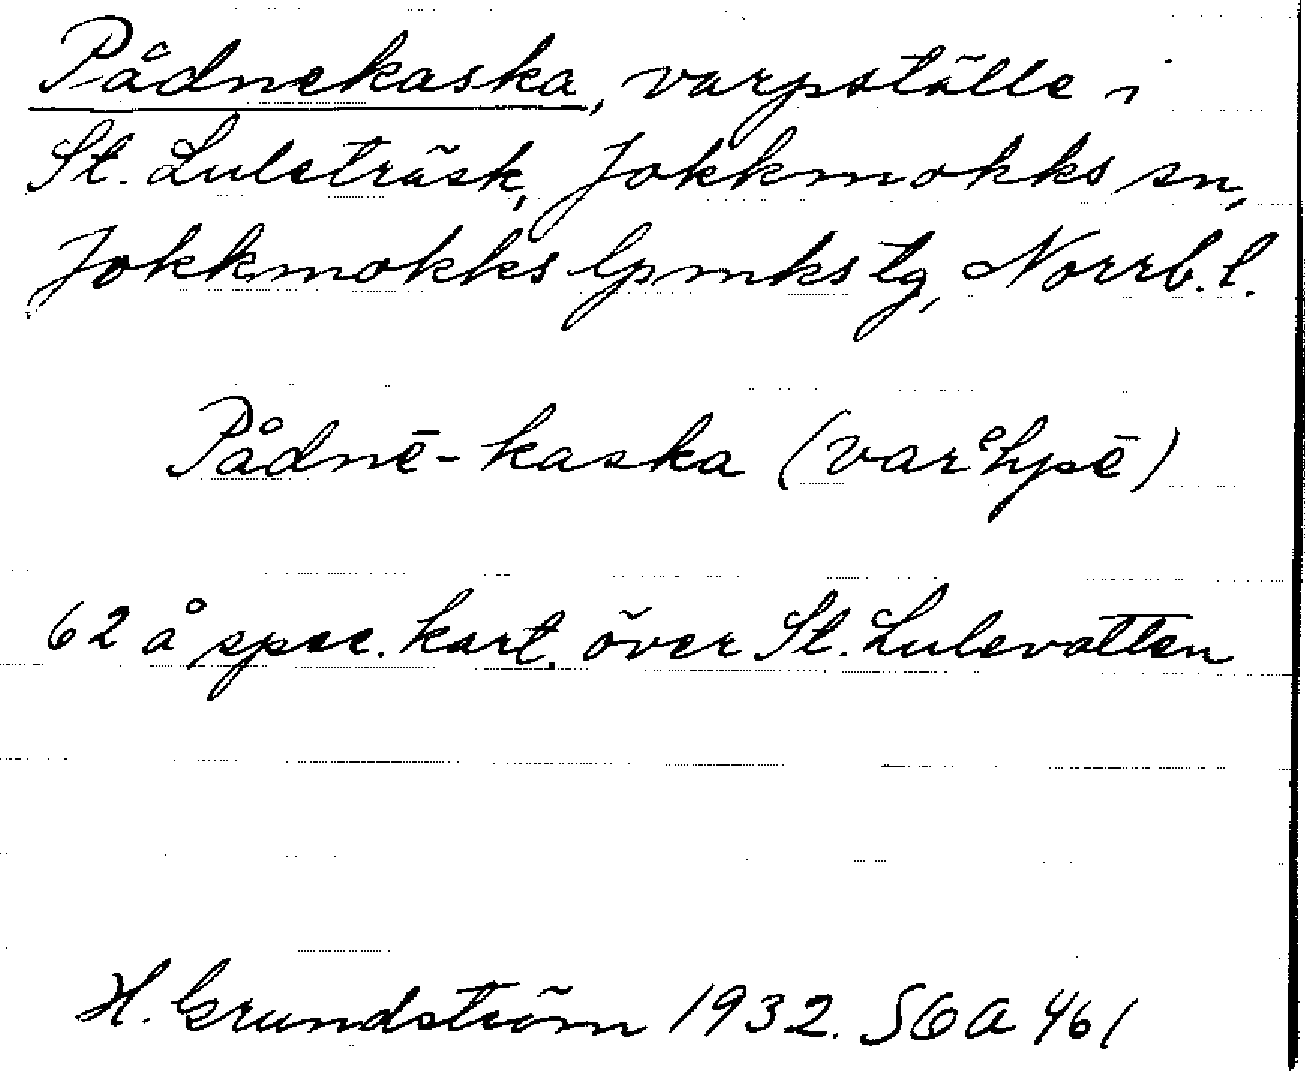 Pådnekaska, varpställe i
St. Luleträsk, Jokkmokks sn,
Jokkmokks lpmks tg, Norrb. l.
Pådnē-kaska (varᵉhpē)
62 å spec. kart. över St. Lulevatten
H. Grundström 1932. SOA 461